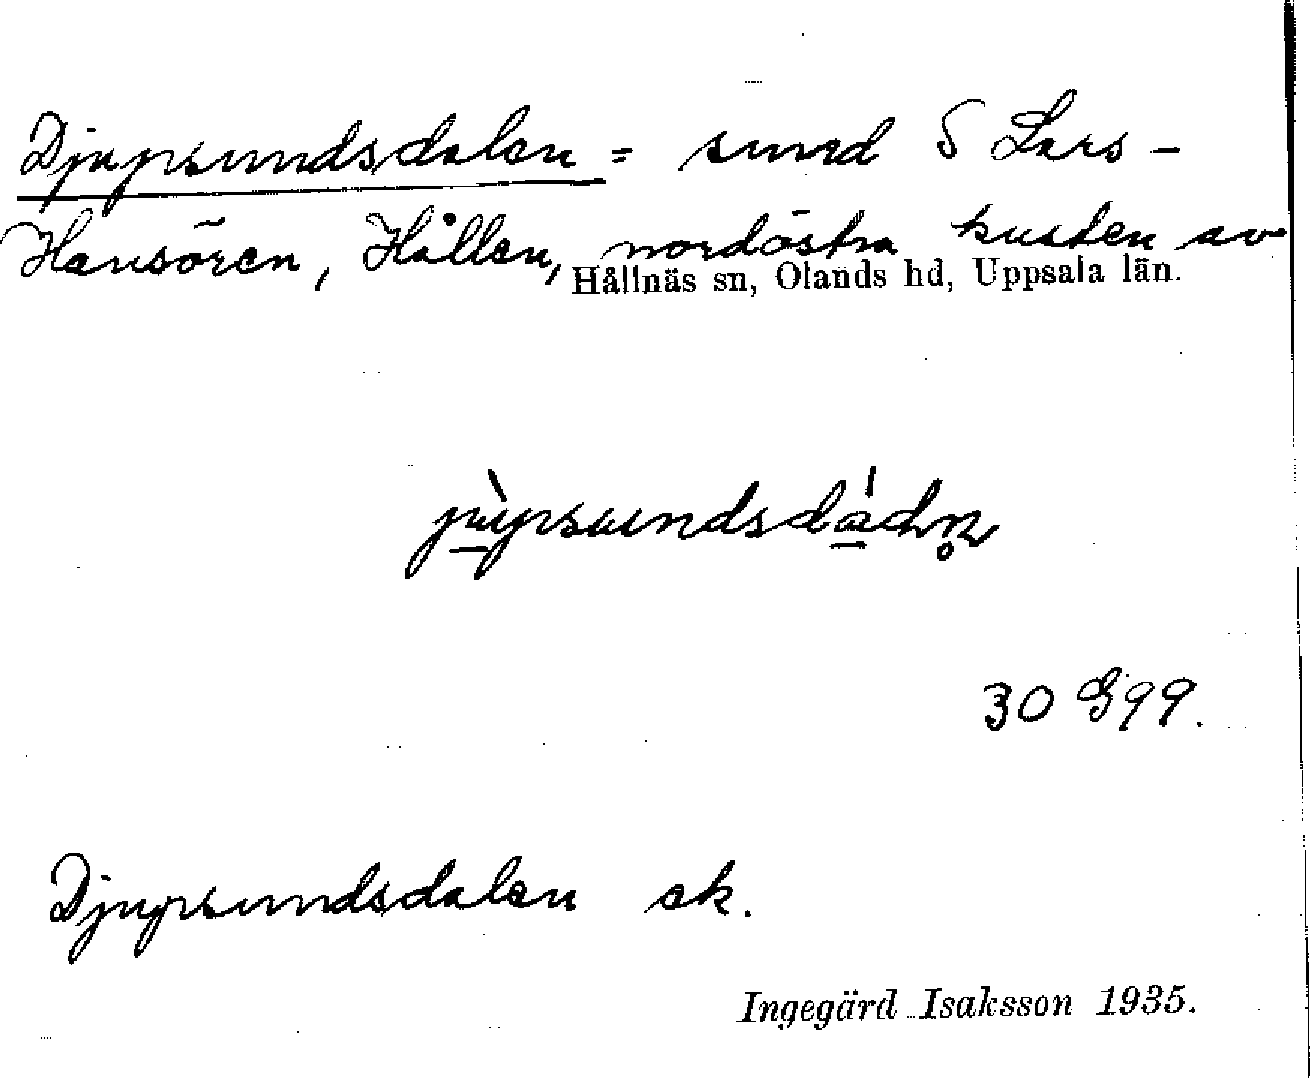 Djupsundsdalen = sund S Lars-
Hansören, Hållen, nordöstra kusten av
Hållnäs sn, Olands hd, Uppsala län.
jù̱psundsdá̱dn̥
30 G99.
Djupsundsdalen ek.
Ingegärd Isaksson 1935.